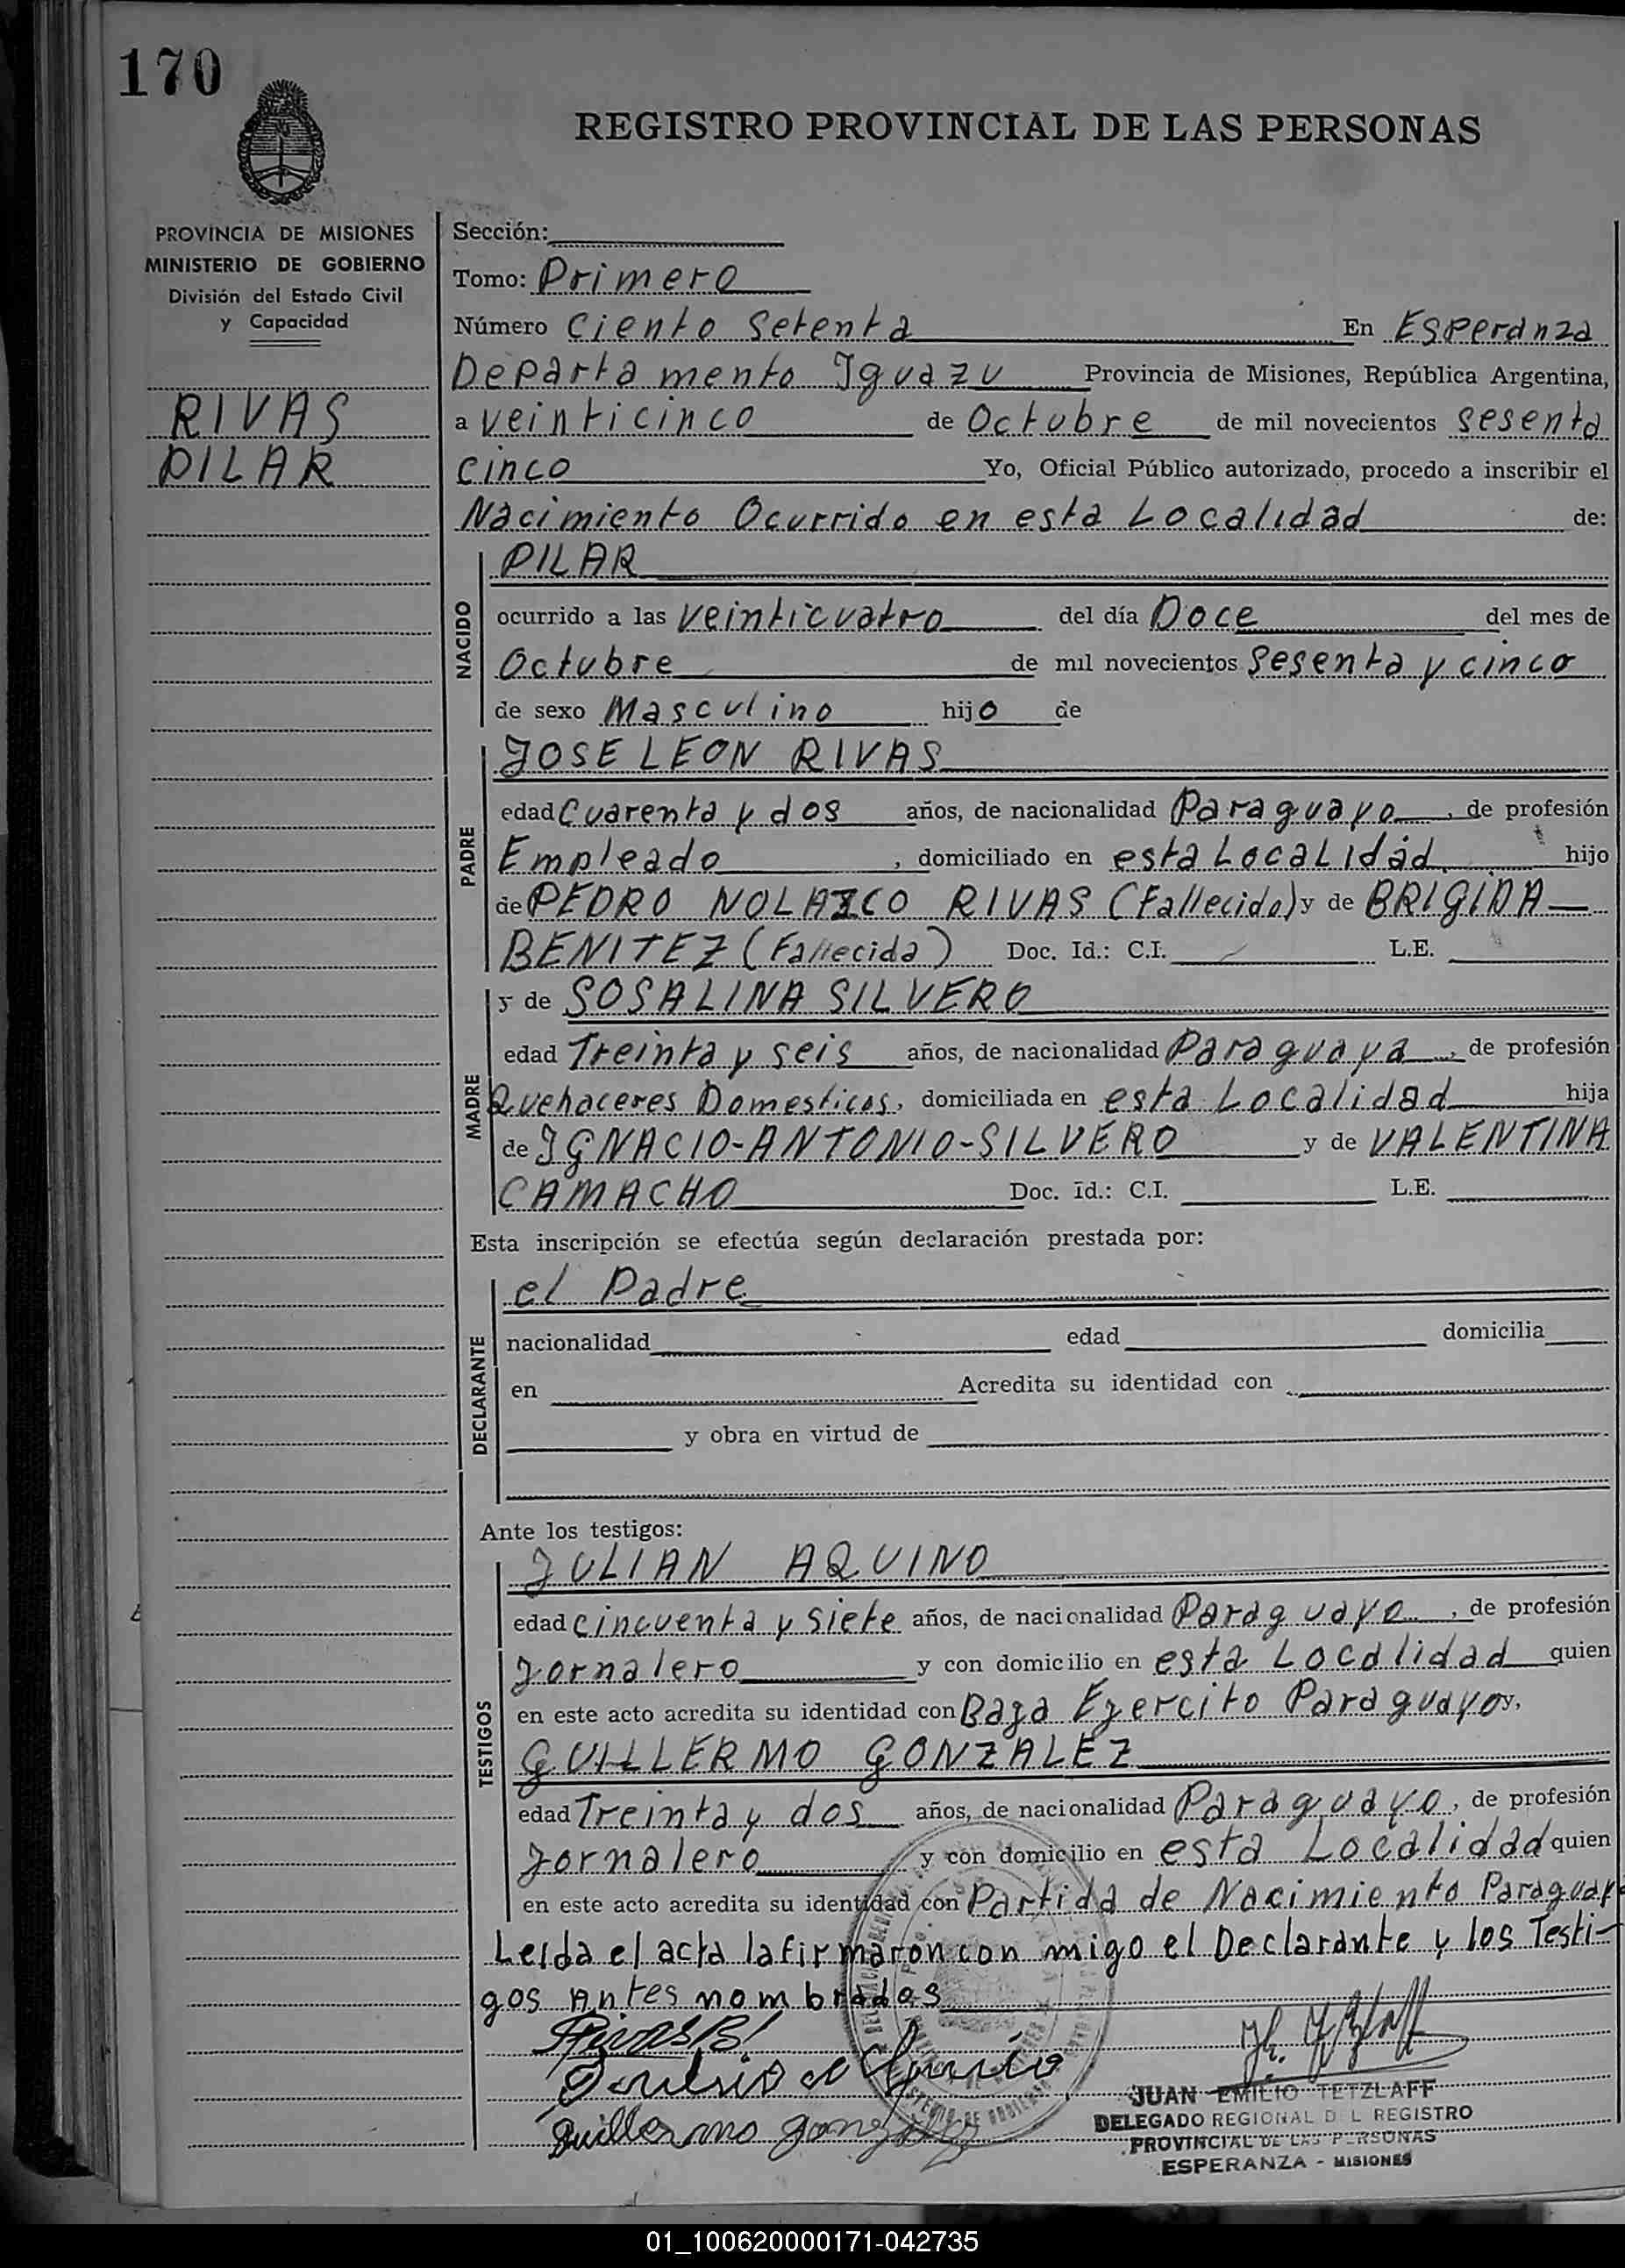 170
REGISTRO PROVINCIAL DE LAS PERSONAS
PROVINCIA DE MISIONES
MINISTERIO DE GOBIERNO
División del Estado Civil
y Capacidad
RIVAS
PILAR
Sección:
Tomo: Primero
Número Ciento Setenta En Esperanza
Departamento Iguazu Provincia de Misiones, República Argentina,
a veinticinco de Octubre de mil novecientos sesenta
cinco Yo, Oficial Público autorizado, procedo a inscribir el
Nacimiento Ocurrido en esta Localidad de:
NACIDO
PILAR
ocurrido a las veinticuatro del día Doce del mes de
Octubre de mil novecientos sesenta y cinco
de sexo Masculino hijo de
PADRE
JOSE LEON RIVAS
edad Cuarenta y dos años, de nacionalidad Paraguayo, de profesión
Empleado, domiciliado en esta Localidad hijo
de PEDRO NOLAZCO RIVAS (Fallecido) y de BRIGIDA
BENITEZ (Fallecida) Doc. Id.: C.I. L.E.
MADRE
y de SOSALINA SILVERO
edad Treinta y seis años, de nacionalidad Paraguaya, de profesión
Quehaceres Domesticos, domiciliada en esta Localidad hija
de IGNACIO-ANTONIO-SILVERO y de VALENTINA
CAMACHO Doc. Id.: C.I. L.E.
Esta inscripción se efectúa según declaración prestada por:
DECLARANTE
el Padre
nacionalidad edad domicilia
en Acredita su identidad con
y obra en virtud de
Ante los testigos:
TESTIGOS
JULIAN AQUINO
edad cincuenta y siete años, de nacionalidad Paraguayo, de profesión
Jornalero y con domicilio en esta Localidad quien
en este acto acredita su identidad con Baja Ejercito Paraguayo y,
GUILLERMO GONZALEZ
edad Treinta y dos años, de nacionalidad Paraguayo, de profesión
Jornalero y con domicilio en esta Localidad quien
en este acto acredita su identidad con Partida de Nacimiento Paraguaya
Leida el acta la firmaron con migo el Declarante y los Testi-
gos Antes nombrados
Guillermo Gonzalez
JUAN EMILIO TETZLAFF
DELEGADO REGIONAL DEL REGISTRO
PROVINCIAL DE LAS PERSONAS
ESPERANZA - MISIONES
01_100620000171-042735